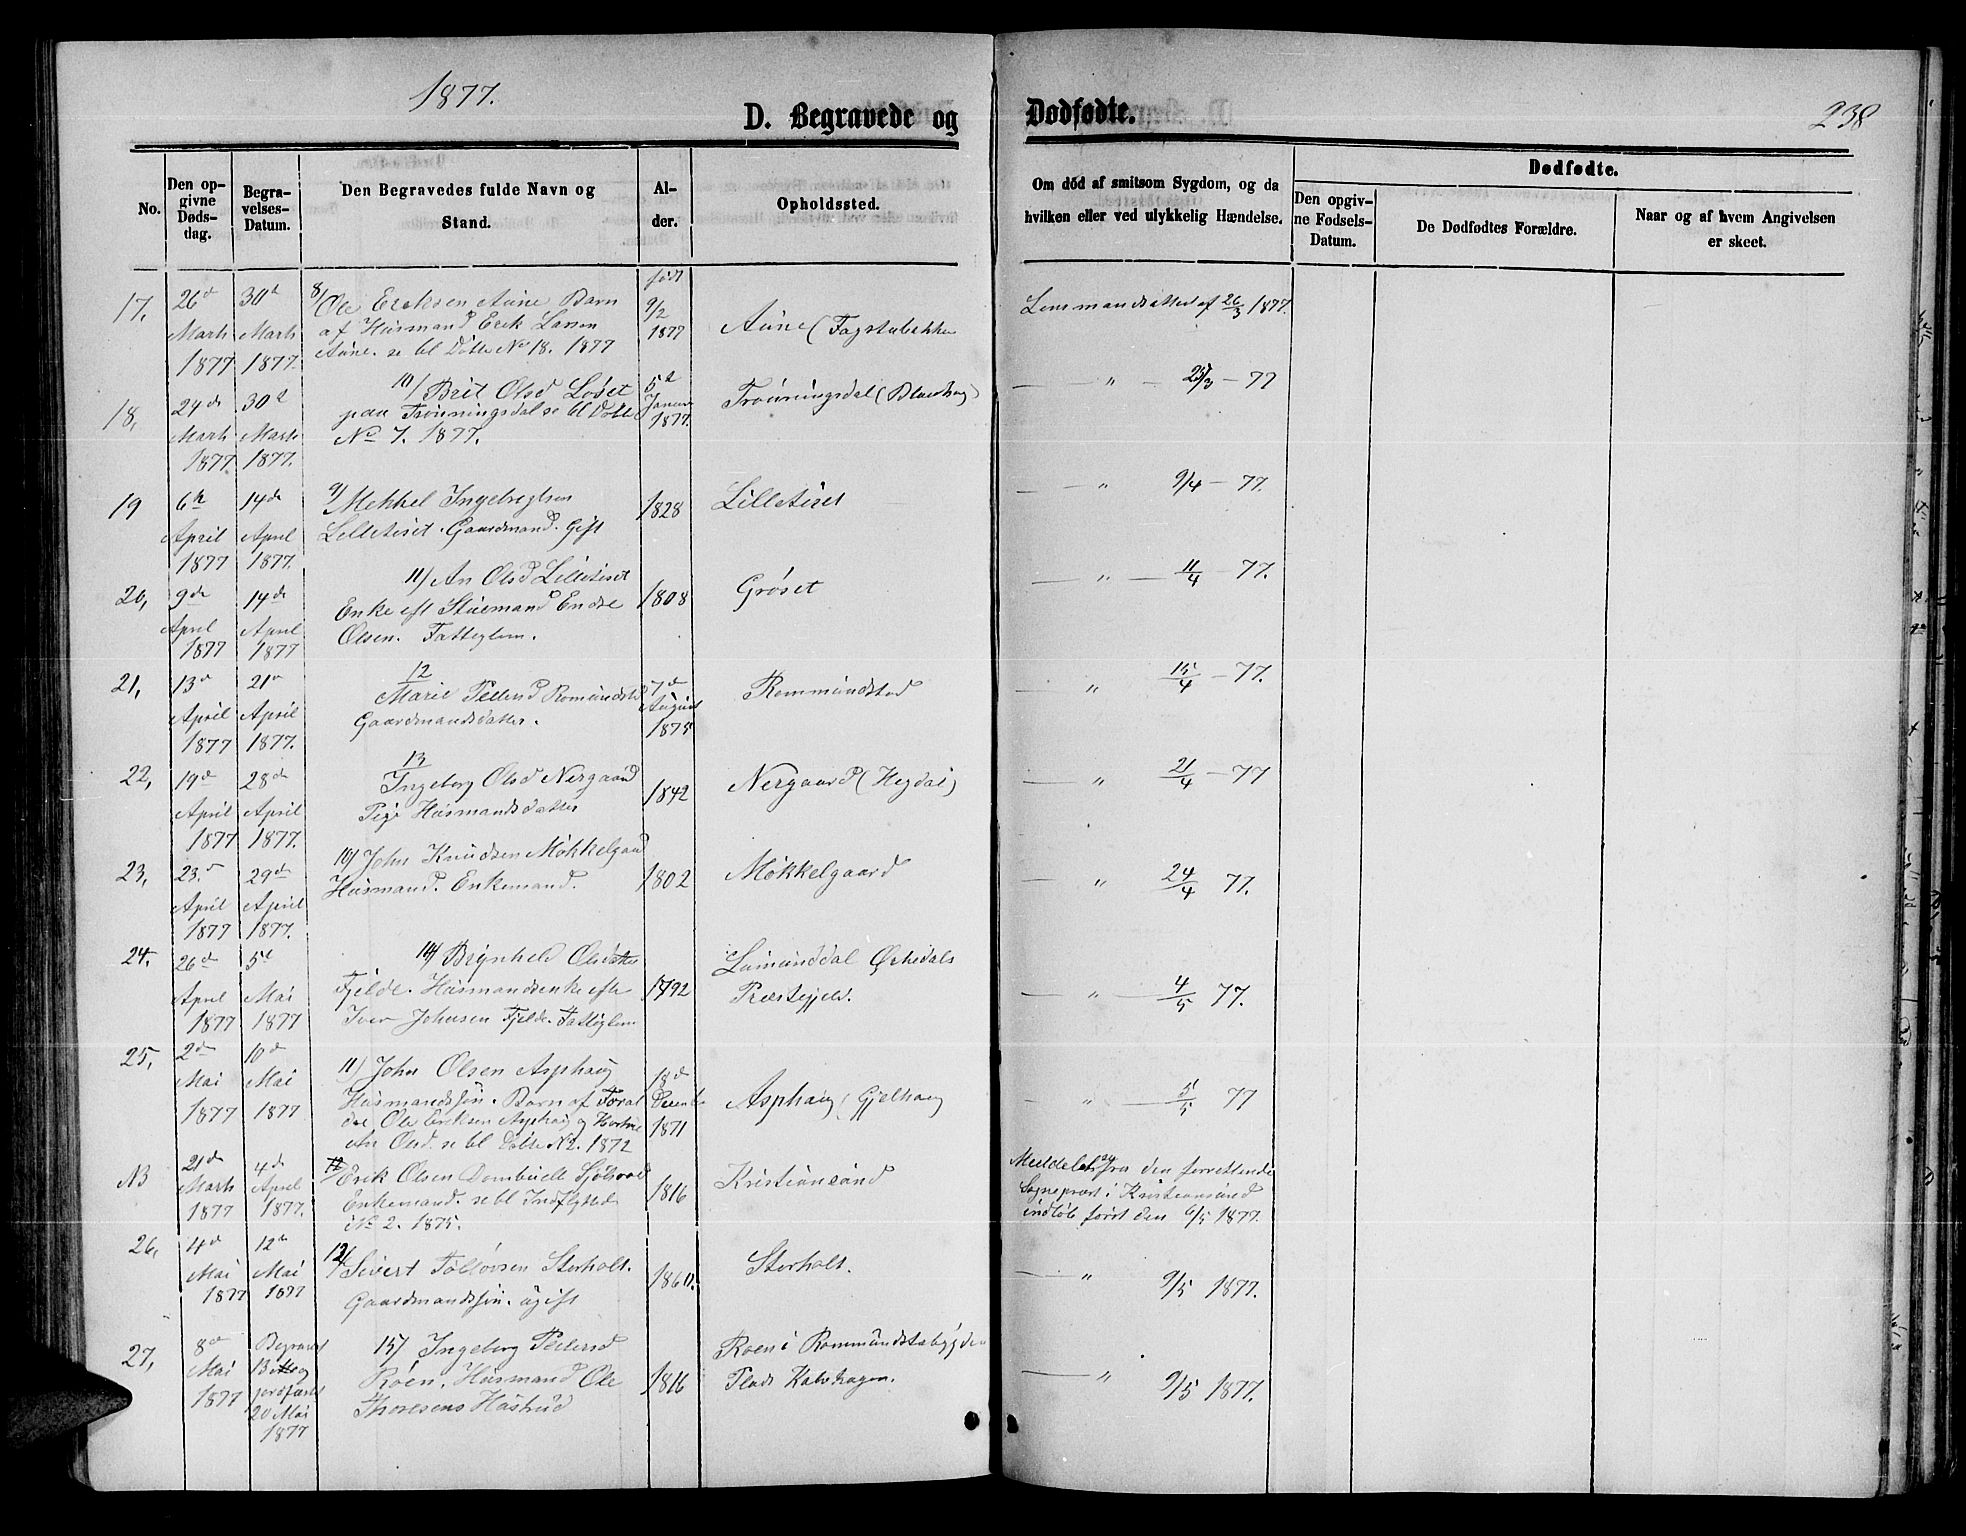 1877.
238
D. Begravede og Dødfødte.
No.
Den op-
givne
Døds-
dag.
Begra-
velses-
Datum.
Den Begravedes fulde Navn og
Stand.
Al-
der.
Opholdssted.
Om død af smitsom Sygdom, og da
hvilken eller ved ulykkelig Hændelse.
Dødfødte.
Den opgiv-
ne Fødsels-
Datum.
De Dødfødtes Forældre.
Naar og af hvem Angivelsen
er skeet.
17.
26de
Marts
1877
30te
Marts
1877.
8/ Ole Eriksen Aune Barn
af Husmand Erik Larsen
Aune. se bl Døbte No 18. 1877
født
9/2
1877
Aune (Fagstubekken
Lensmandsattest af 26/3 1877.
18,
24de
Marts
1877
30te
Marts
1877.
10/ Brit Olsd Løset
paa Trønningsdal se bl Døbte
No 7. 1877.
5te
Januar
1877.
Trønningsdal (Blaahaug)
— " — 23/3 — 77
19
6te
April
1877
14de
April
1877.
9/ Mekkel Ingebregtsen
Lilletiset. Gaardmand. Gift
1828
Lilletiset
— " 9/4 — 77.
20,
9de
April
1877
14de
April
1877
11/ An Olsd Lilletiset
Enke eft Stuemand Endre
Olsen. Fattiglem.
1808
Grøset
— " — 11/4 — 77.
21,
13de
April
1877
21de
April
1877.
12
Marie Peders Romundst
Gaardmandsdatter.
7de
August
1875
Rommundstad
" 15/4 — 77.
22,
19de
April
1877
28de
April
1877.
13
Ingeborg Olsd Nergaard
Pige Husmandsdatter
1842
Nergaard (Hegdal)
— " 21/4 — 77
23,
23de
April
1877
29de
April
1877.
10/ John Knudsen Møkkelgaard
Husmand. Enkemand.
1802
Møkkelgaard
— " 24/4 77.
24.
26de
April
1877
5te
Mai
1877
14/ Brynhild Olsdatter
Fjelde. Husmandsenke efter
Iver Johnsen Fjelde. Fattiglem
1792
Præstegjeld.
— " — 4/5 77.
25,
2de
Mai
1877
10de
Mai
1877
11/ John Olsen Asphaug
Husmandssøn. Barn af Foræl
dre Ole Eriksen Asphaug og Hustru
An Olsd. se bl Døbte No 2. 1872
18de
December
1871
Asphaug (Gjelhaug
— " — 5/5 77
NB
21de
Marts
1877
4de
April
1877.
12 Erik Olsen
Enkemand. se bl Indflyttede
No 2. 1875.
1816
Kristiansund
Meddelelse fra den forrettende
Sognepræst i Kristiansund
indløb først den 6/5 1877.
26,
4de
Mai
1877
12te
Mai
1877
13/ Sivert Tølløvsen Storholt.
Gaardmandssøn. ugift
1860.
Storholt.
— " 9/5 1877.
27,
8de
Mai
1877
Begravet
13de og
20 Mai
1877
15/ Ingeborg Pedersd
Røen. Husmand Ole
Thoresens Hustrud
1816
Røen i Rommundstabygden
Plads Kalvhagen.
— " 9/5 1877.